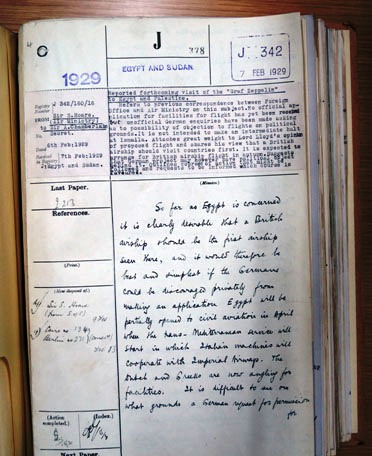 J
J 342
7 FEB 1929
1929
EGYPT AND SUDAN
Registry Number J 342/160/16
FROM Sir S. Hoare,
Air Ministry,
to Sir A. Chamberlain
Secret.
No.
Dated 6th Feb. 1929
Received in Registry 7th Feb. 1929
J: Egypt and Sudan.
Reported forthcoming visit of the "Graf Zeppelin"
to Egypt and Palestine.
Refers to previous correspondence between Foreign
Office and Air Ministry on this subject. No official ap-
plication for facilities for flight has yet been received
but unofficial German enquiries have been made asking
as to possibility of objection to flights on political
grounds. It is not intended to make an intermediate halt
at Ismailia. Attaches great weight to Lord Lloyd's opinion
of proposed flight and shares his view that a British
airship should visit countries first. It is expected to
arrange for British airship flight in
Last Paper.
J 213
References.
(Print.)
(How disposed of.)
Sir S. Hoare
(Action completed.)
(Index.)
Next Paper.
(Minutes.)
So far as Egypt is concerned
it is clearly desirable that a British
airship should be the first airship
seen there, and it would therefore be
best and simplest if the Germans
could be discouraged privately from
making an application. Egypt will be
partially opened to civil aviation in April
when the trans-Mediterranean service will
start in which Italian machines will
cooperate with Imperial Airways. The
Dutch and Greeks are now angling for
facilities. It is difficult to see on
what grounds a German request for permission
for